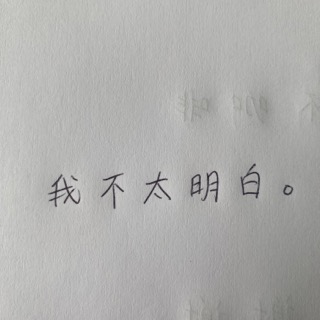 我不太明白。